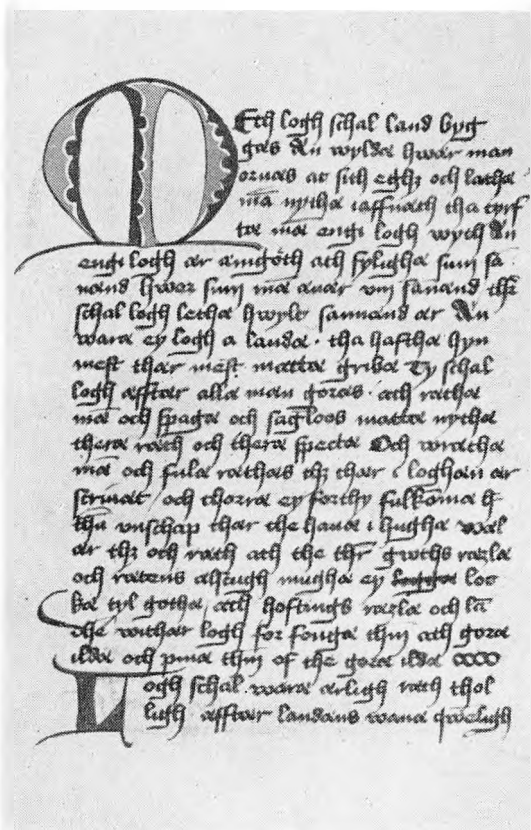 MEth logh schal land byg
gæs Æn wylde hwar man
ornæs at sith eghz och lathæ
mā nythæ iaffnæth tha tyrf
tæ mā engi logh wyth Æn
engi logh ær æmgoth ath fylughæ sum sa
nænd hwer sum mā æuær um sanænd thr̄
schal logh lethæ hwylt sannænd ær Æn
waræ ey logh a landæ · tha hafthæ hyn
mest thær mest mattæ gribæ Ty schal
logh æfftær allæ mæn gøræs · ath rathæ
mā och spagæ och sagløøs mattæ nythæ
theræ ræth och theræ spectæ Och wrathæ
mā och fulæ rathæs thz thær i loghæn ær
scriuæt och thorræ ey forthy fulkomæ
thn vnschap thær the hauæ i hughæ wæl
ær thz och ræth ath the thr̄ guths ræzlæ
och rætens ælsrugh mughæ ey loc
kæ tyl gothæ ath høftings ræzlæ och lā
dhe withær logh for fongæ thm ath gøræ
ildæ och pinæ thm of the gøræ ildæ
Logh schal waræ ærligh ræth thol
ligh æfftær landæns wanæ qweligh